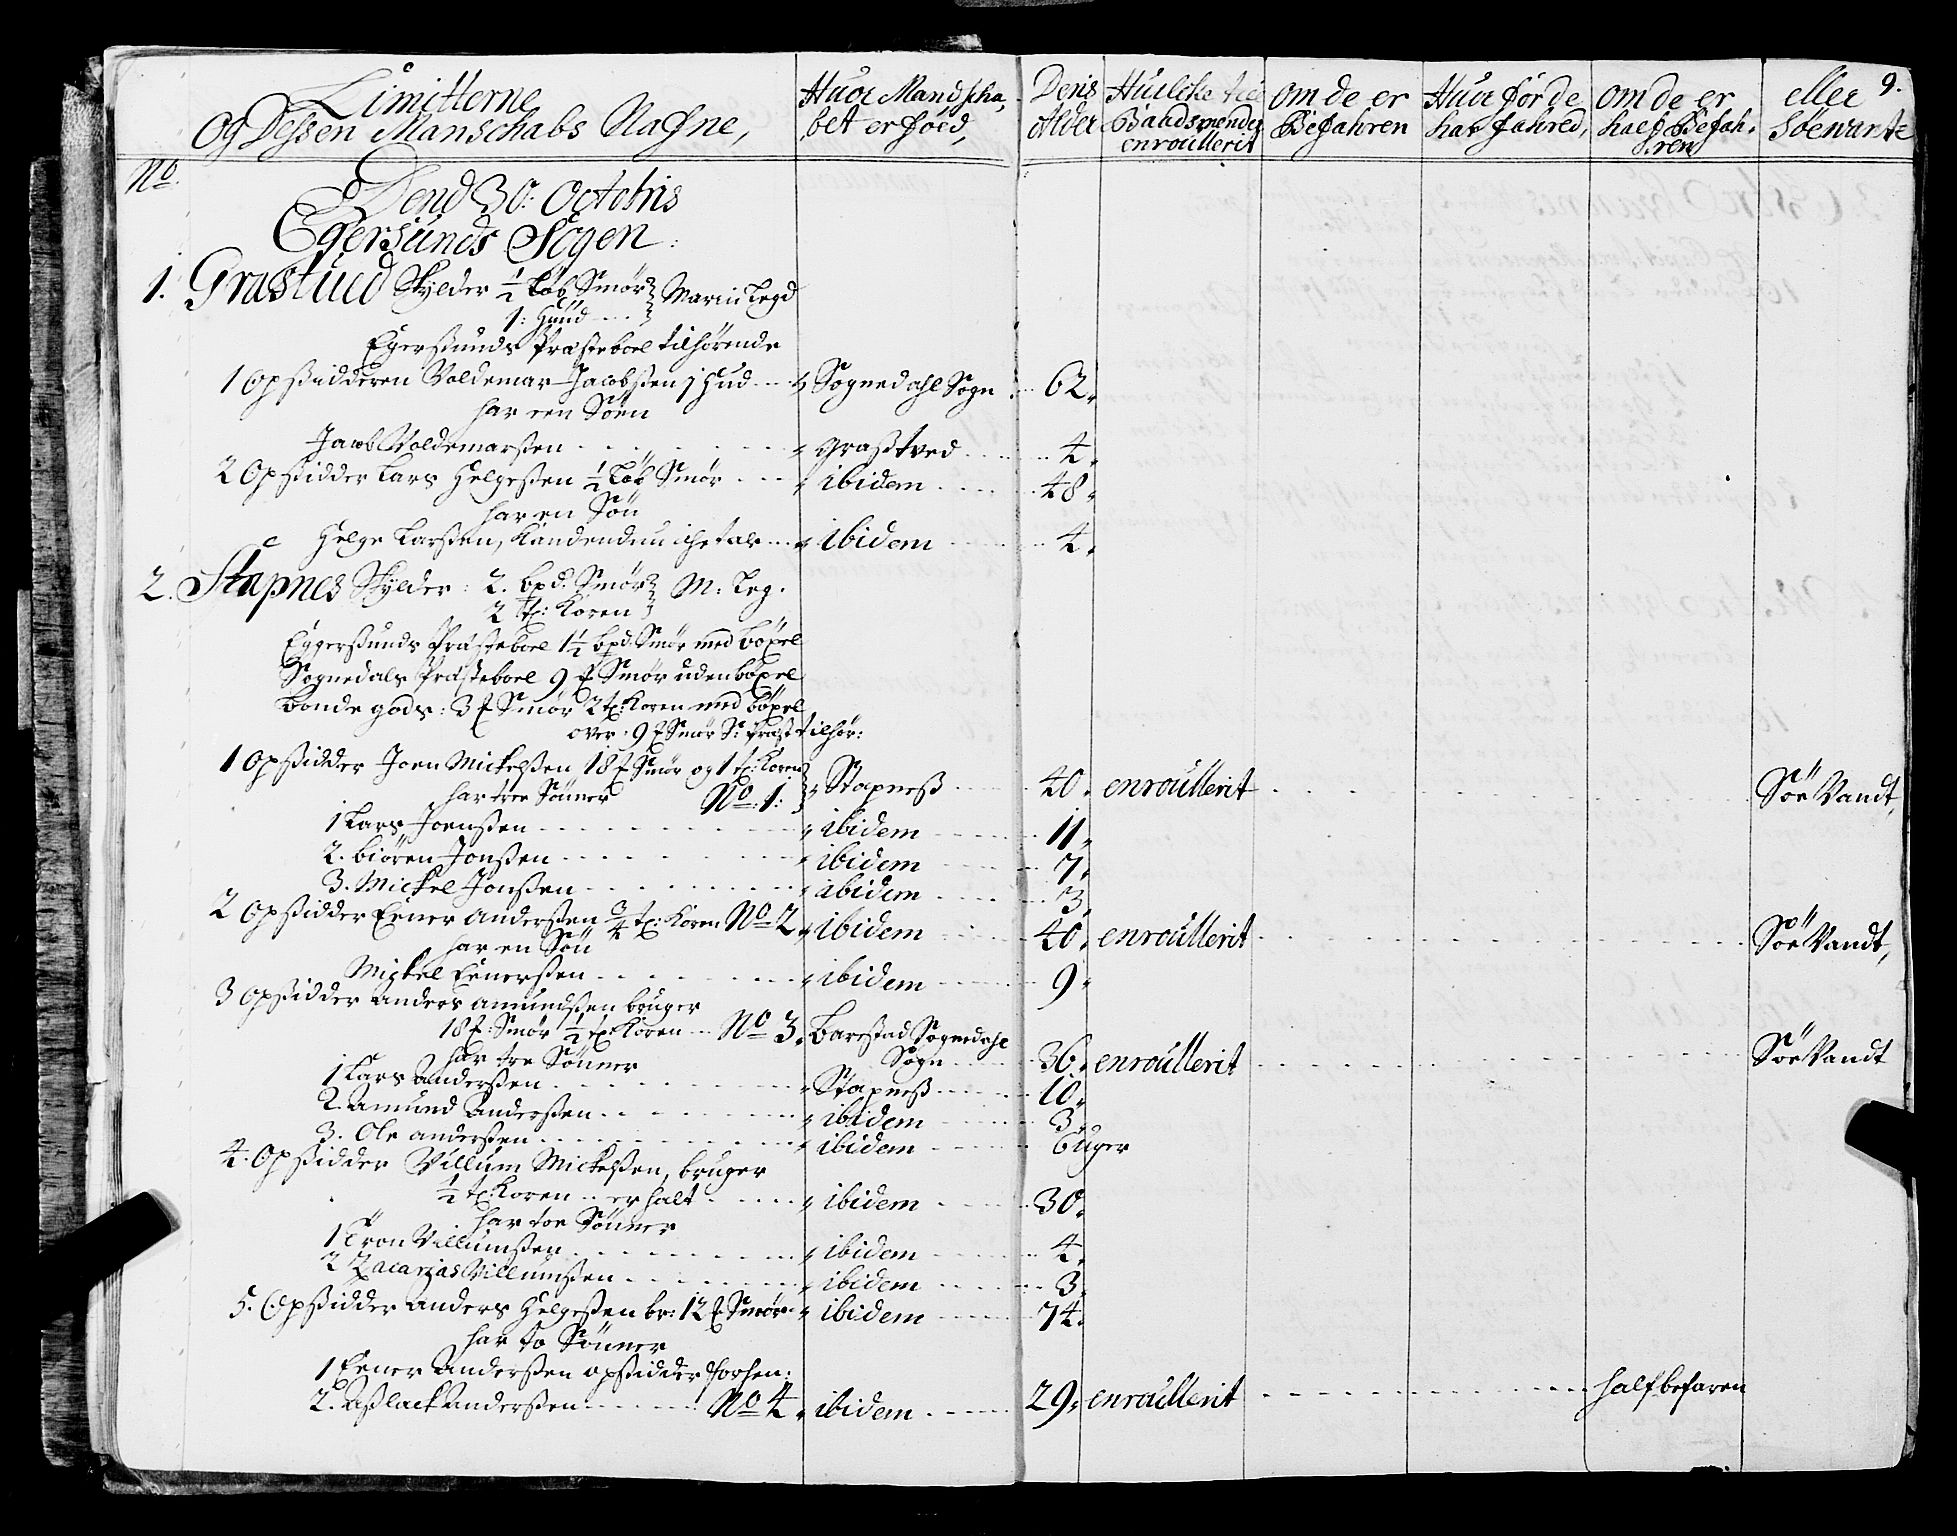 Limitterne
Og Dessen Manschabs Nafne,
Huor Mandscha,
bet er föed,
Deris
Alder
Huilcke till
Baadsmender
enroullerit
om de er
Befahren
Huor för de
har fahred,
om de er
half Befah,
ren
eller
Söewante
9.
No.
Dend 30: Octobris
Egersunds Sogen:
1. Grastued Skylder ½ Löb Smör Marin Legd
1: Huud
Egersunds Præsteboel tilhörende
1 Opsidderen Voldemar Jacobsen 1 hud Sognedahl Sogn 62.
har een Sön
Jacob Voldemarsen grastved 4.
2 Opsidder Lars Helgesen ½ Löb Smör ibidem 48.
har en Sön
Helge Larsen, ibidem 4.
2. Stapnes Skylder: 2. bpd: Smör M: Leg.
2 tp: Koren
Eggersunds Præsteboel 1½ bpd: Smör med böxel
Sognedals Præsteboel 9 £ Smör uden böxel
Bonde gods: 3 £ Smör 2 tp: Koren med böxel
over 9 £ Smör S: Præst tilhör:
1 Opsidder Joen Mickelsen 18 £ Smör og 1 tp: Koren
har tree Sönner No. 1: Stapness 40. enroullerit Söe Vandt
1 Lars Joensen ibidem 11.
2. Biören Jonsen ibidem 7.
3. Mickel Jonsen ibidem 3.
2 Opsidder Eener Andersen ¾ tp: Koren No 2. ibidem 40. enroullerit Söe Vandt,
har en Sön
Mickel Eenersen ibidem 9.
3 Opsidder Anders Amundsen bruger
18 £: Smör ½ tp: Koren No 3. Barestad Sognedahl
har tre Sönner Sogn 36. enroullerit Söe Vandt
1 Lars Andersen Stapness 10.
2. Amund Andersen ibidem 3.
3. Ole Andersen ibidem 6 uger
4. Opsidder Villum Mickelsen, bruger
½ tp: Koren er halt ibidem 30.
har toe Sönner
1 Tron Villumsen ibidem 4.
2 Zacarias Villumsen ibidem 3.
5. Opsidder Anders Helgesen br: 12 £ Smör ibidem 74.
har to Sönner
1 Eener Andersen opsidder forhen:
2. Aslack Andersen No 4. ibidem 29. enroullerit half befaren